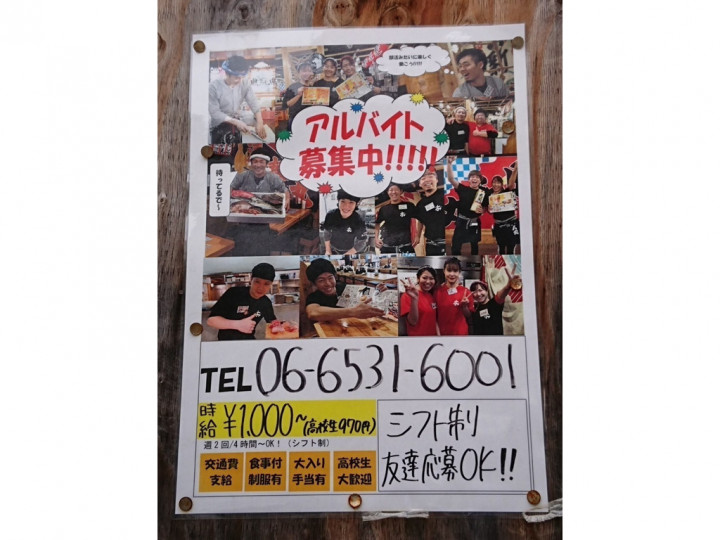 部活みたいに楽しく
働こう!!!!!
アルバイト
募集中!!!!!
待ってるで〜
TEL 06-6531-6001
時給 ¥1,000〜(高校生970円)
週2回/4時間〜OK!(シフト制)
交通費
支給
食事付
制服有
大入り
手当有
高校生
大歓迎
シフト制
友達応募OK!!